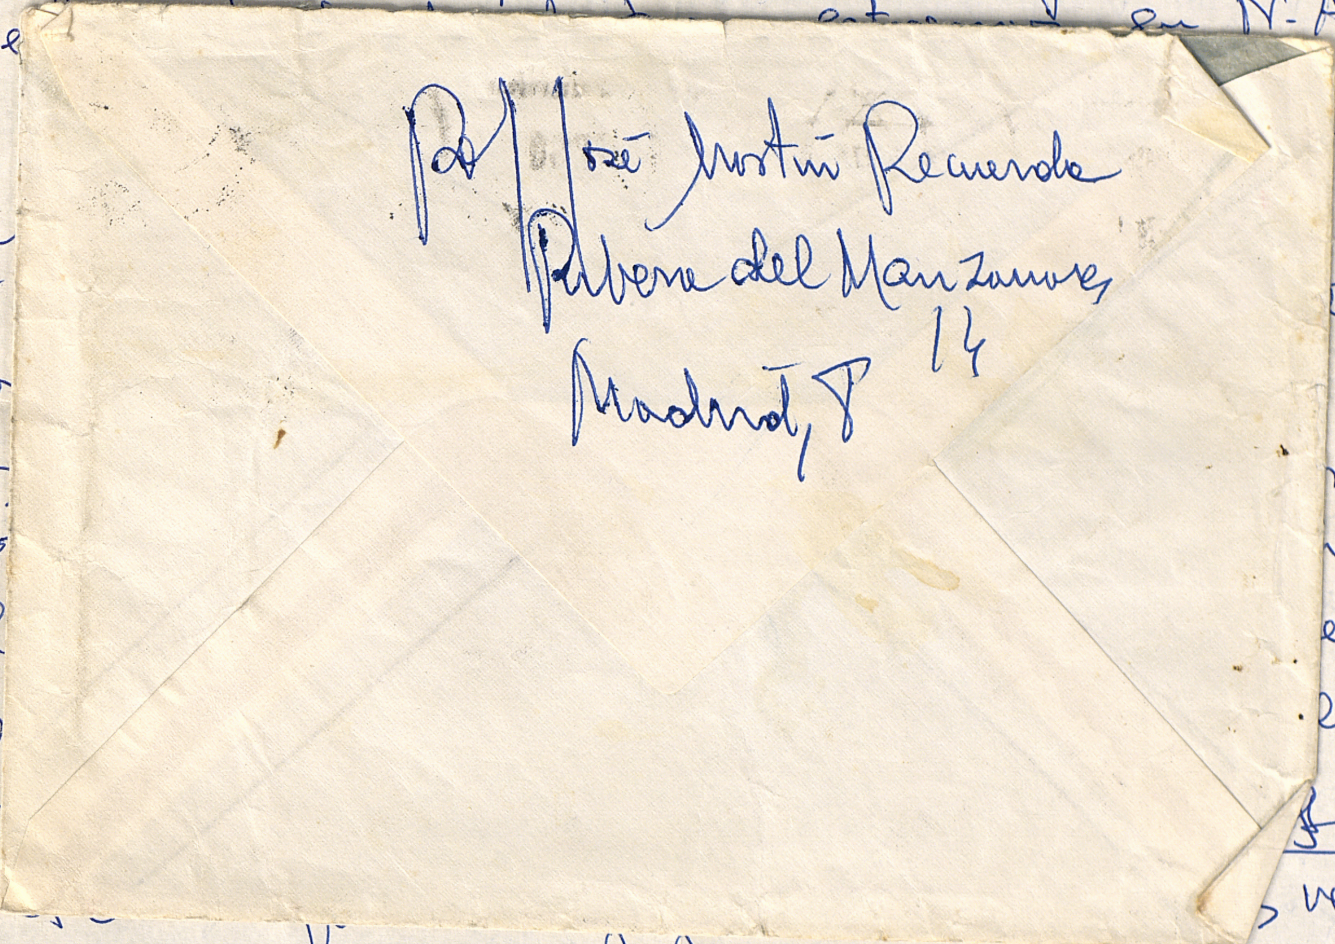 José Martín Recuerda
Ribera del Manzanares,
14
Madrid, 8